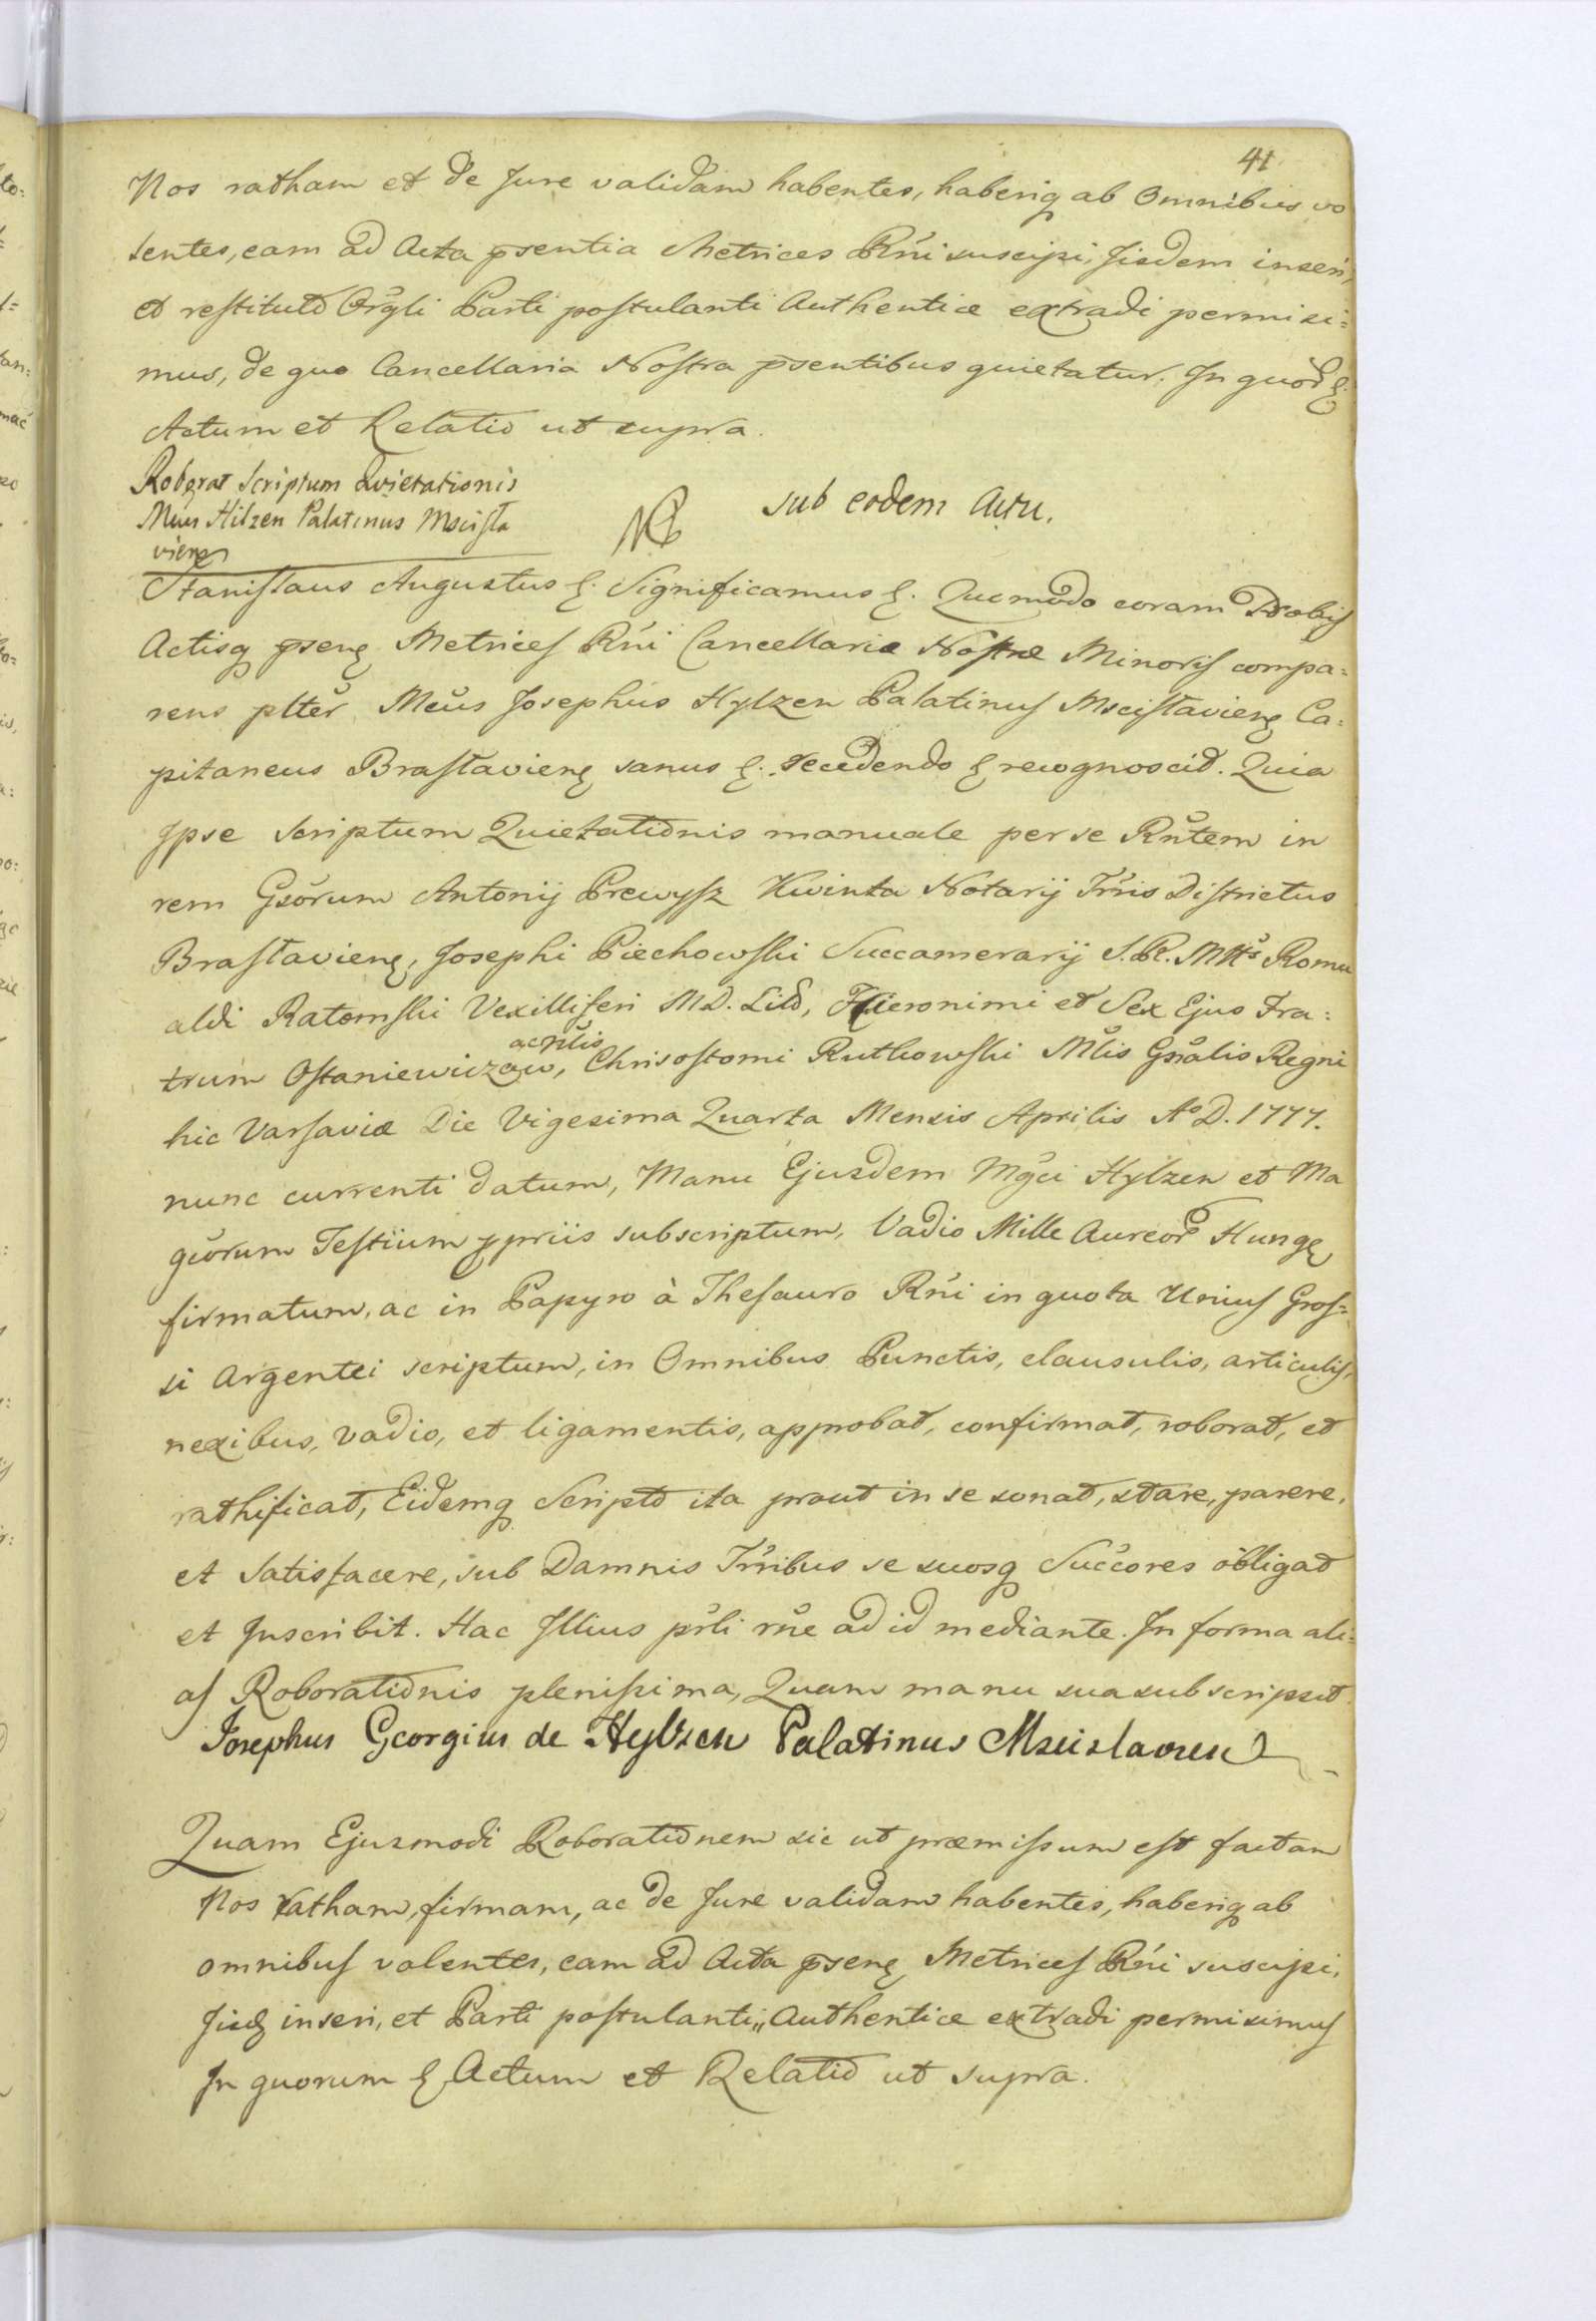 41
Nos ratham et de Jure validam habentes, haberiq ab Omnibus vo
lentes, eam ad Acta psentia Metrices Rni suscipi, Jisdem inseri,
et restituto Orgli Parti postulanti Authentice extradi permisi=
mus, de quo Cancellaria Nostra psentibus quietatur. In quor
Actum et Relatio ut supra.
Roborat Scriptum Quietationis
Mcus Hilzen Palatinus Mscisla
viens
sub eodem Actu.
Stanislaus Augustus &. Significamus &. Quomodo coram Nobis
Actisq psens Metrices Rni Cancellariæ Nostræ Minoris compa=
rens plter Mcus Josephus Hylzen Palatinus Mscislaviens Ca=
pitaneus Braslaviens sanus &. recedendo & recognoscit. Quia
Jpse Scriptum Quietationis manuale per se Rntem in
rem Gsorum Antonij Prewysz Kwinta Notarij Trris Districtus
Braslaviens, Josephi Piechowski Succamerarij S. R. Mttis Romu
aldi Ratomski Vexilliferi M.D. Lith, Hieronimi et Sex Ejus Fra=
acntis
trum Ostaniewiczow, Chrisostomi Rutkowski Mlis Gnalis Regni
hic Varsaviæ Die Vigesima Quarta Mensis Aprilis Ao D. 1777.
nunc currenti datum, Manu Ejusdem Mgci Hylzen et Ma
gcorum Testium ppriis subscriptum, Vadio Mille Aureor Hungs
firmatum, ac in Papyro à Thesauro Rni in quota Unius Gros=
si Argentei scriptum, in Omnibus Punctis, clausulis, articulis,
nexibus, vadio, et ligamentis, approbat, confirmat, roborat, et
rathificat, Eidemq Scripto ita prout in se sonat, stare, parere,
et Satisfacere, sub Damnis Trribus se suosq Succores obligat
et Inscribit. Hac Jllius prli rne ad id mediante. In forma ali=
as Roborationis plenissima, Quam manu sua subscripsit.
Josephus Georgius de Hylzen Palatinus Mscislavien
Quam Ejusmodi Roborationem sic ut præmissum est factam
Nos ratham, firmam, ac de Jure validam habentes, haberiq ab
omnibus volentes, eam ad Acta psens Metrices Rni suscipi,
Jisd inseri, et Parti postulanti,, Authentice extradi permisimus
In quorum & Actum et Relatio ut supra.